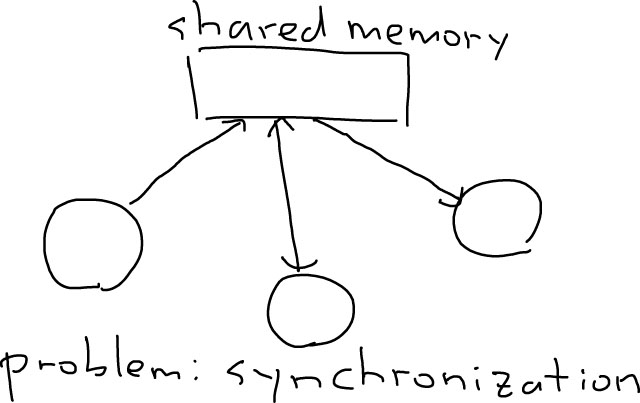 shared memory
problem: synchronization